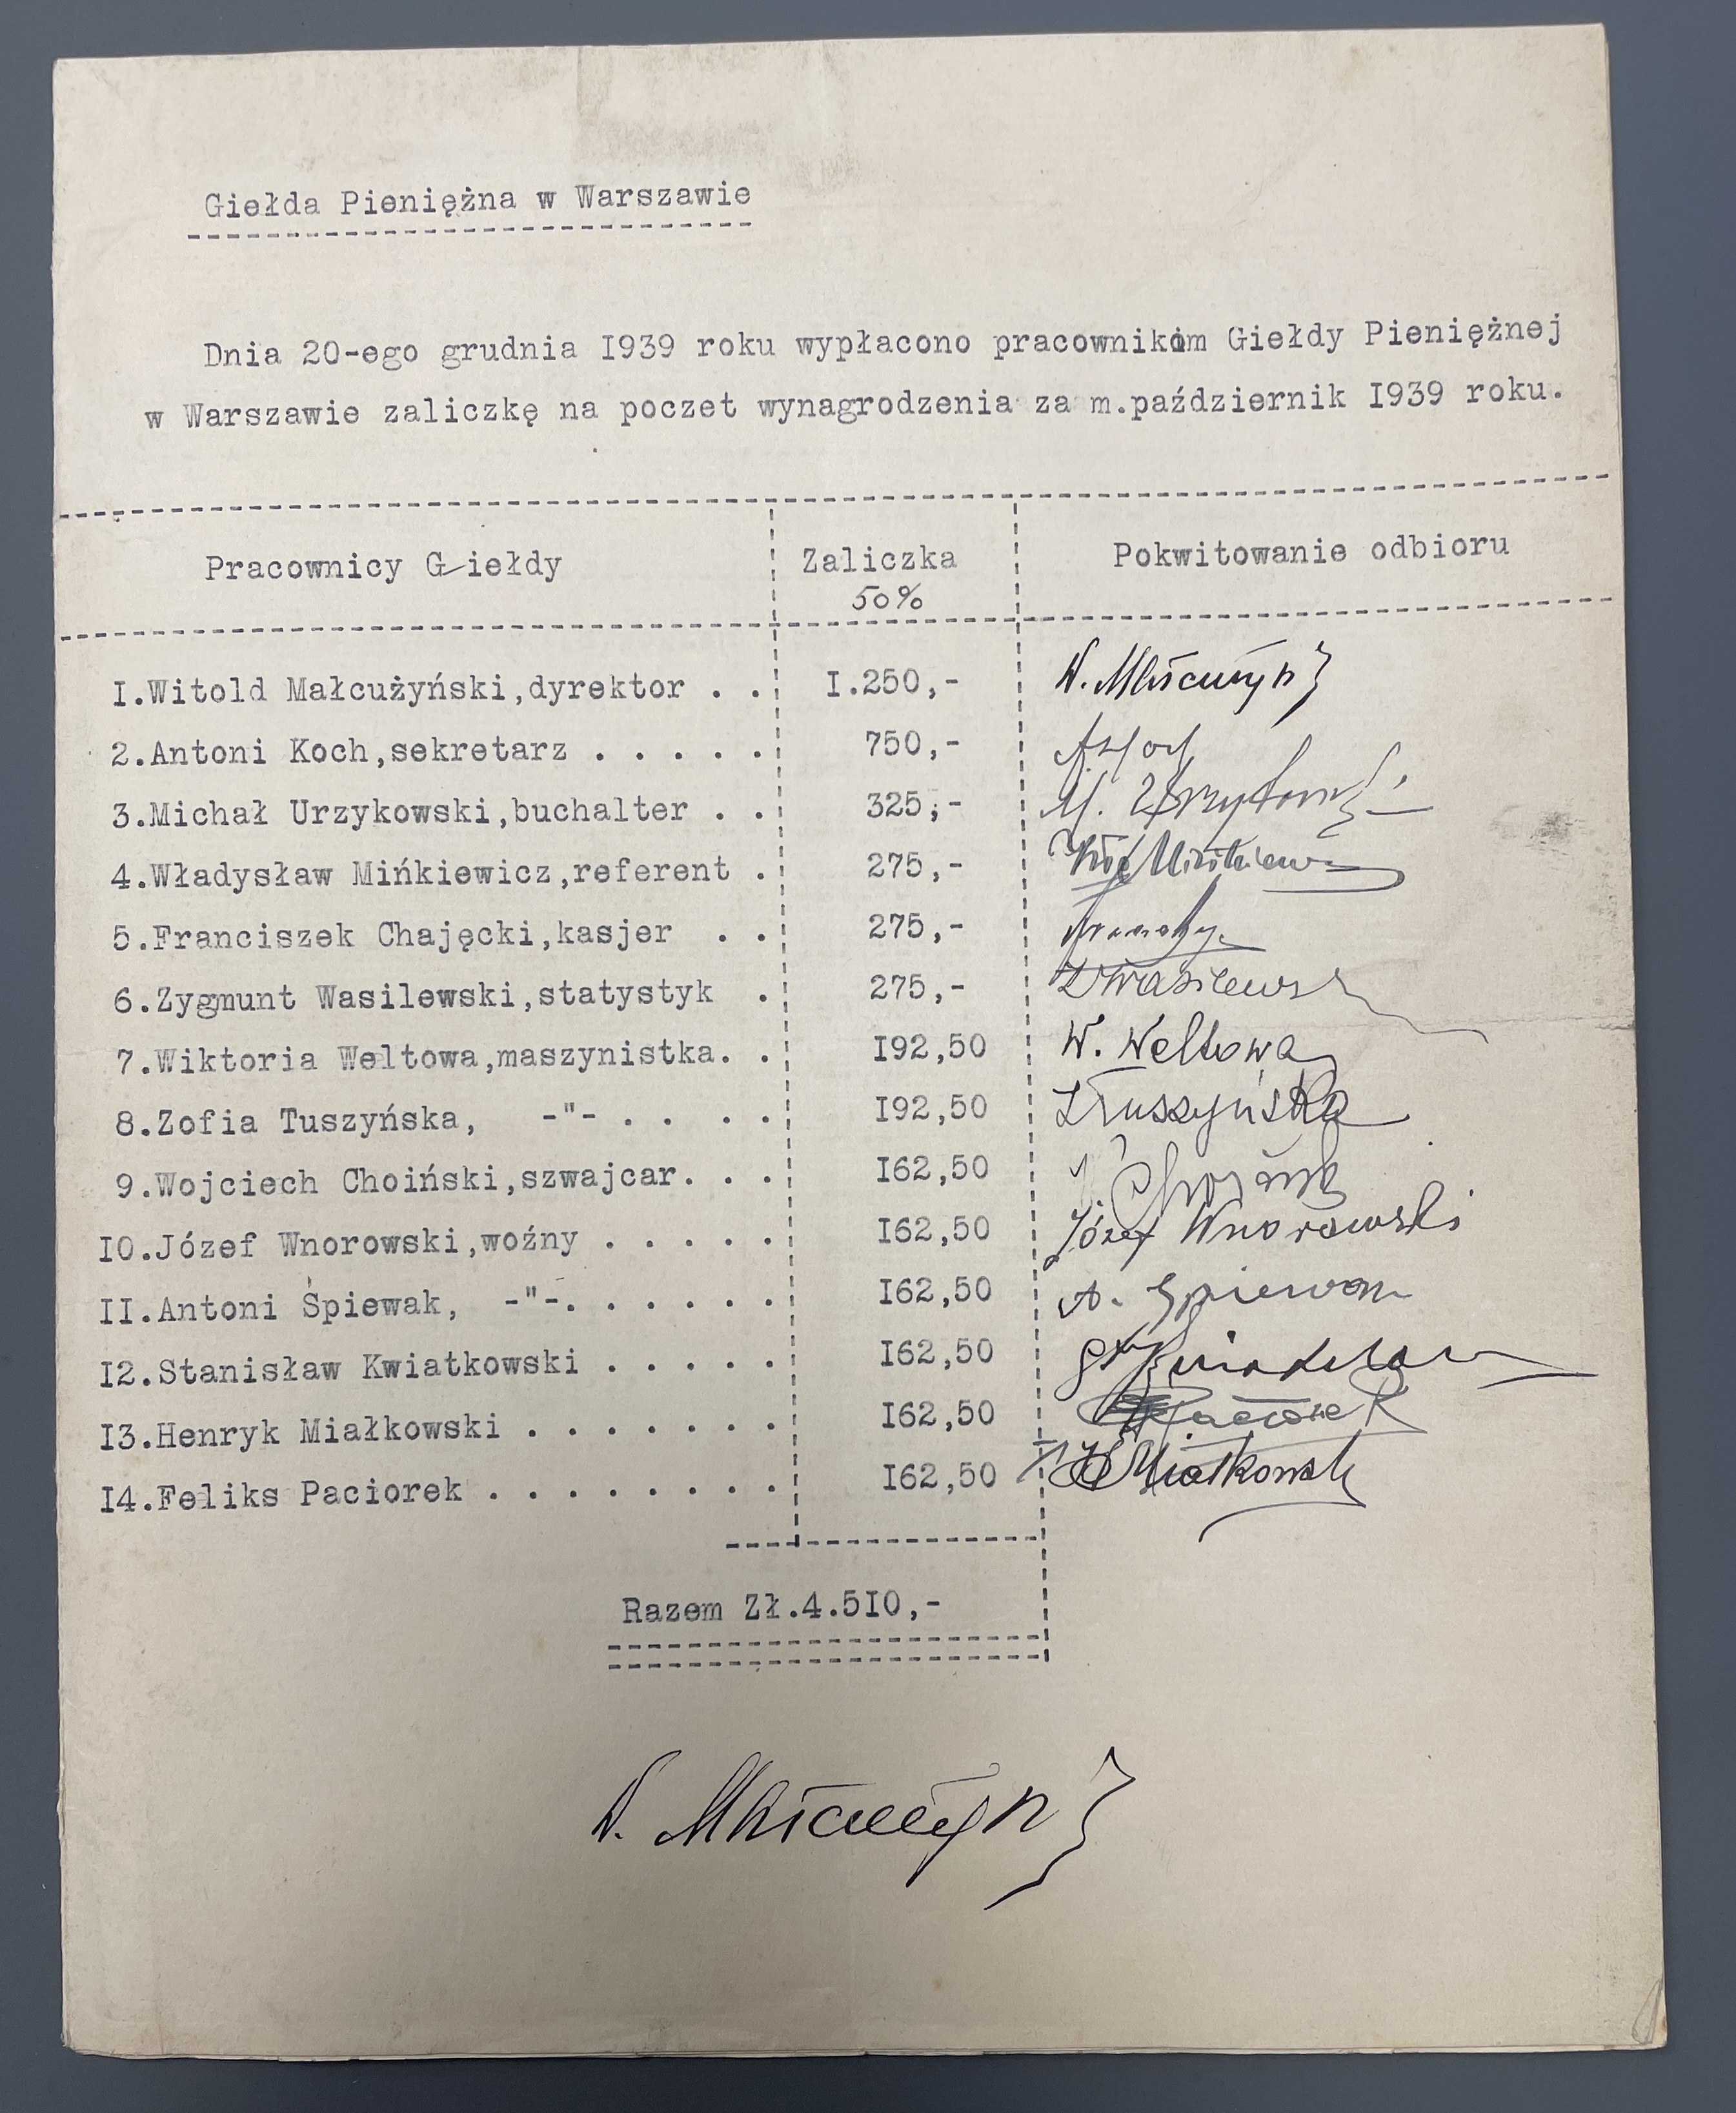 Giełda Pieniężna w Warszawie
Dnia 20-ego grudnia I939 roku wypłacono pracownikom Giełdy Pieniężnej
w Warszawie zaliczkę na poczet wynagrodzenia za m.październik I939 roku.
Pracownicy Giełdy Zaliczka Pokwitowanie odbioru
50%
I.Witold Małcużyński,dyrektor . . I.250,-
2.Antoni Koch,sekretarz . . . . . 750,-
3.Michał Urzykowski,buchalter . . 325,-
4.Władysław Mińkiewicz,referent . 275,-
5.Franciszek Chajęcki,kasjer . . 275,-
6.Zygmunt Wasilewski,statystyk . 275,- Z Wasilewski
7.Wiktoria Weltowa,maszynistka. . I92,50 W. Weltowa
8.Zofia Tuszyńska, -"- . . . . I92,50 Z Tuszyńska
9.Wojciech Choiński,szwajcar. . . I62,50
IO.Józef Wnorowski,woźny . . . . . I62,50 Józef Wnorowski
II.Antoni Śpiewak, -"-. . . . . . I62,50 A. Spiewak
I2.Stanisław Kwiatkowski . . . . . I62,50
I3.Henryk Miałkowski . . . . . . . I62,50
I4.Feliks Paciorek . . . . . . . . I62,50 H Miałkowski
Razem Zł.4.5IO,-